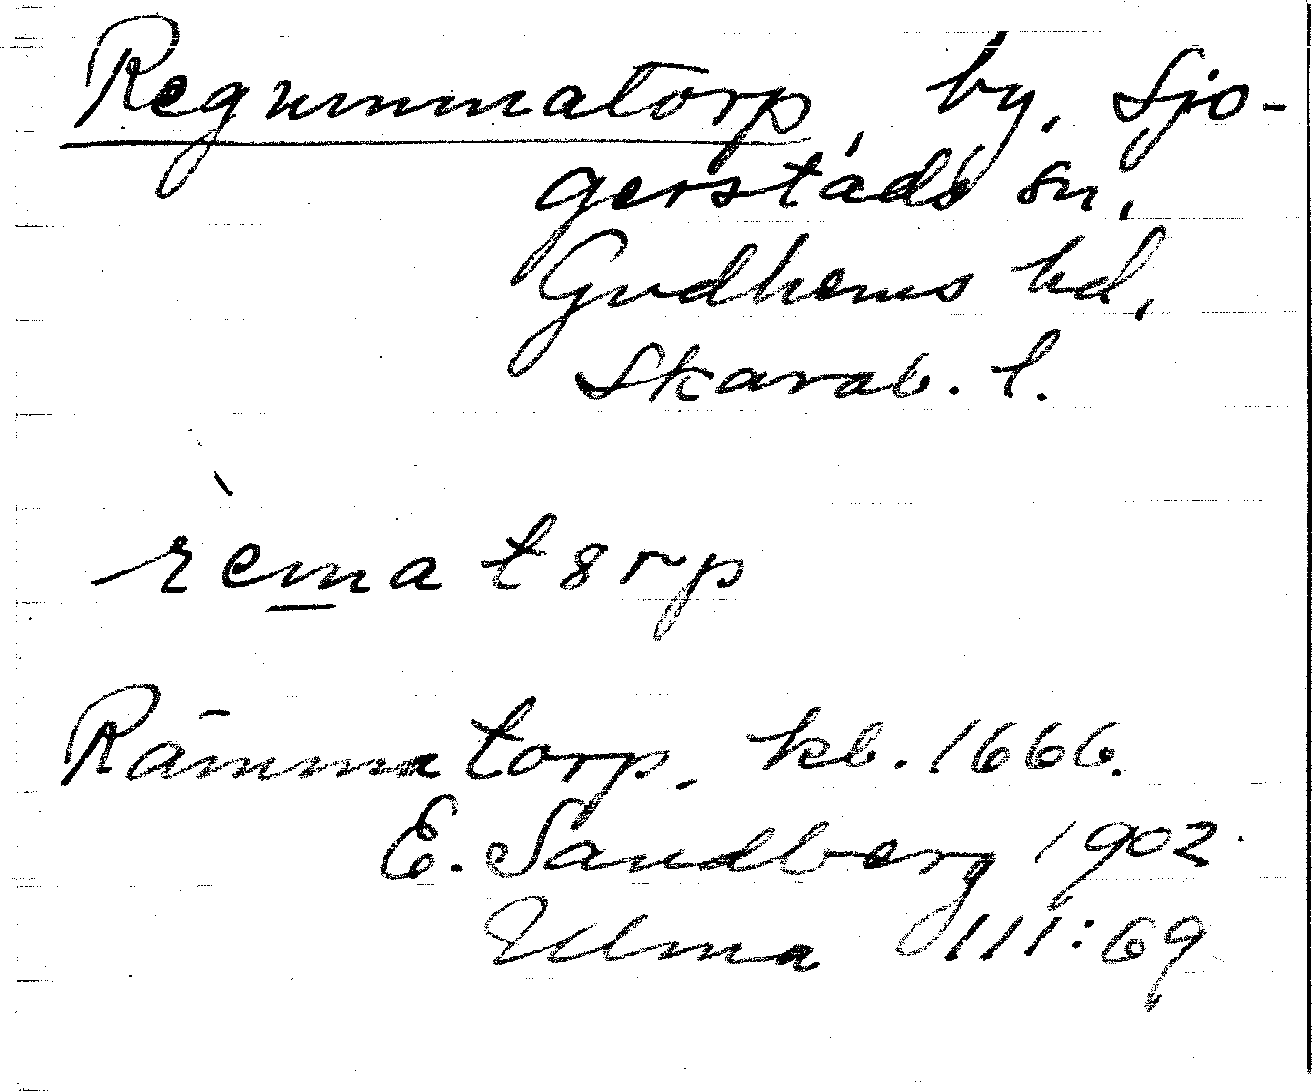 Regummatorp, by, Sjo-
gerstads sn,
Gudhems hd,
Skarab. l.
rematorp
Rämmatorp. kb. 1666.
E. Sandberg 1902
Ulma 111:69